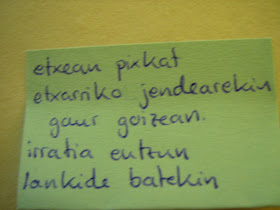 etxean pixkat
etxarriko jendearekin
gaur goizean.
irratia entzun
lankide batekin